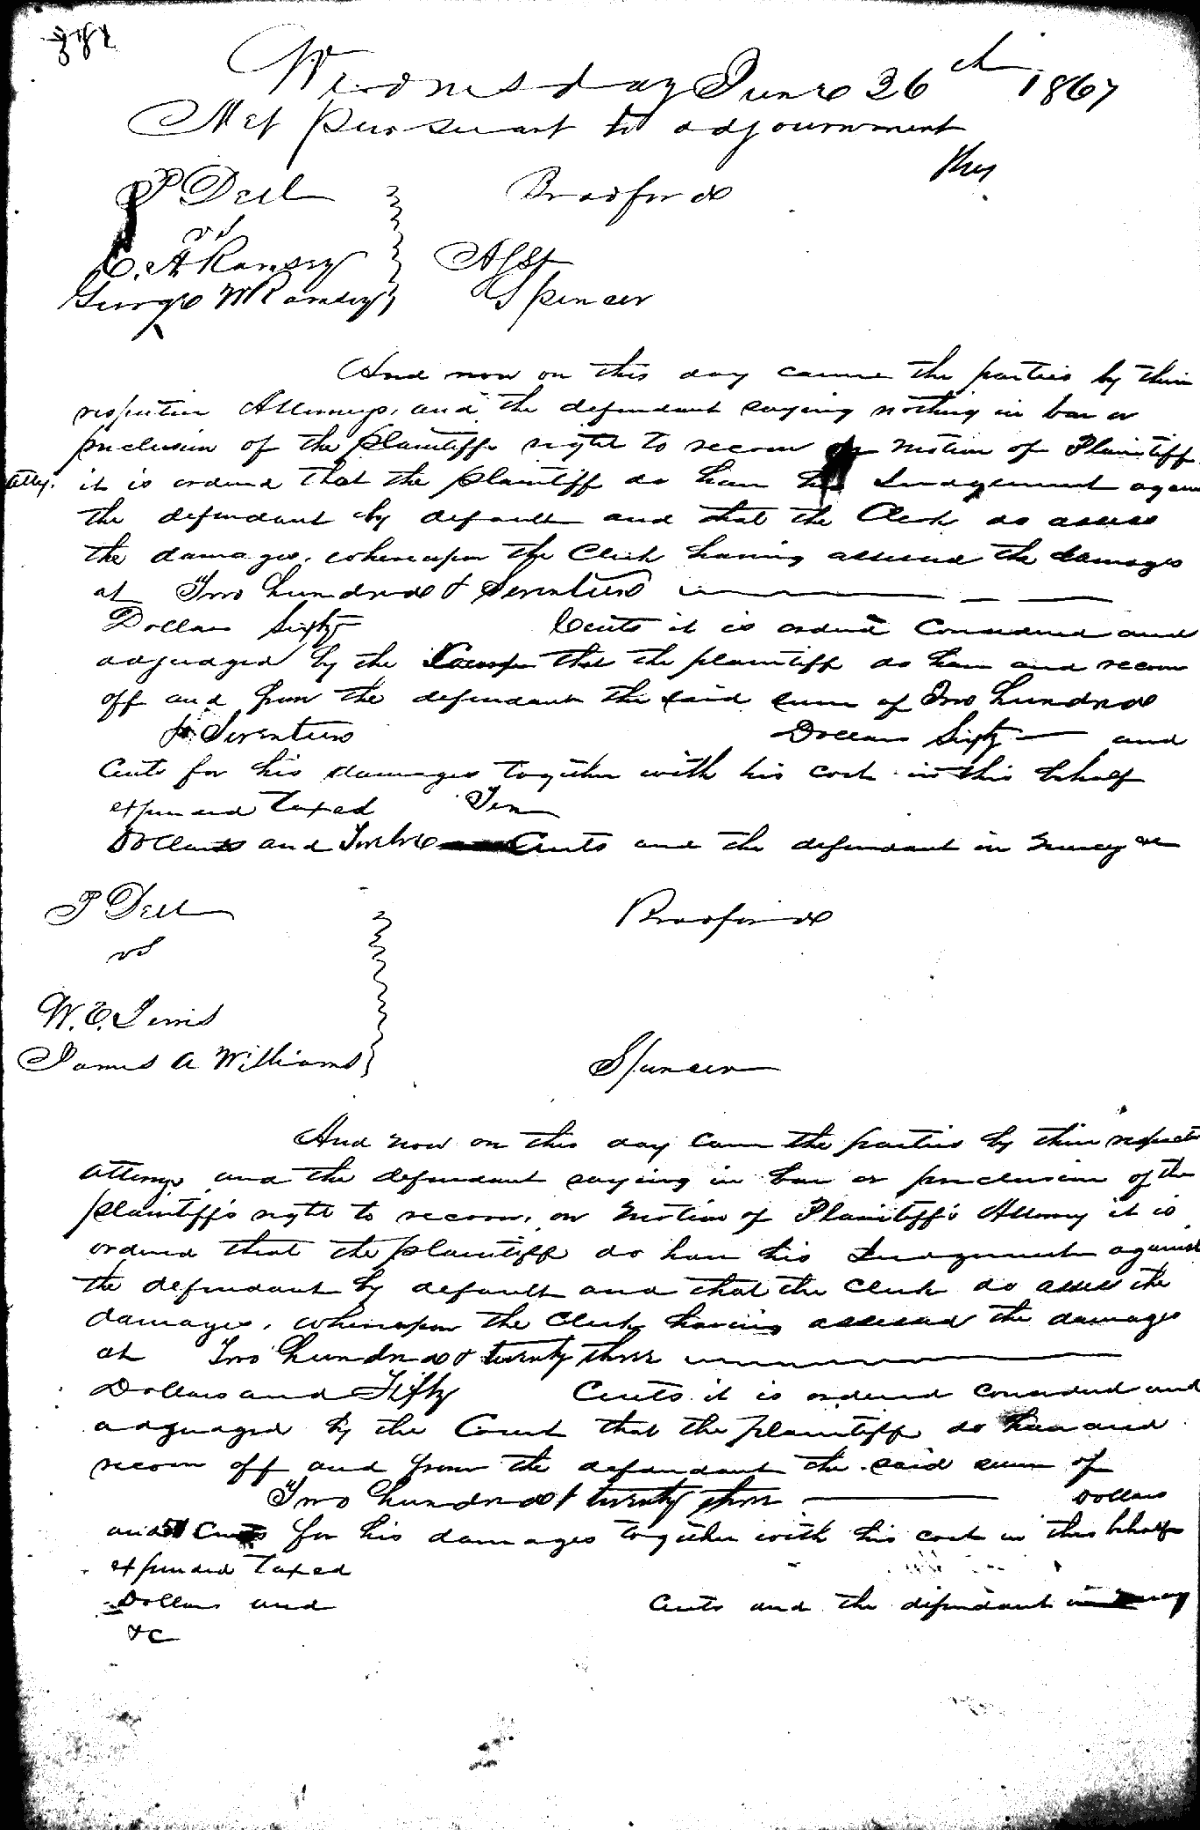 Wednesday June 26th 1867
Met pursuant to adjournment
P Dell Bradford
vs
C. A Ramsey Asst
George W Ramsey Spencer
And now on this day came the parties by their
respective Attorneys, and the defendant saying nothing in bar or
preclusion of the plaintiffs right to recover on motion of Plaintiff
Atty. it is ordered that the plaintiff do have his Judgement against
the defendant by default and that the Clerk do assess
the damages, whereupon the Clerk having assessed the damages
at Two hundred & Seventeen
Dollars Sixty Cents it is ordered Considered and
adjudged by the Court that the plaintiff do have and recover
off and from the defendant the said sum of Two hundred
& Seventeen Dollars Sixty and
Cents for his damages together with his cost in this behalf
expended taxed Ten
Dollars and Twelve Cents and the defendant in mercy &c
P Dell Bradford
vs
W. E. Lewis
James A Williams Spencer
And now on this day came the parties by their respective
Attorneys and the defendant saying in bar or preclusion of the
plaintiffs right to recover, on motion of Plaintiffs Attorney it is
ordered that the plaintiff do have his Judgement against
the defendant by default and that the Clerk do assess the
damages, whereupon the Clerk having assessed the damages
at Two hundred & twenty three
Dollars and Fifty Cents it is ordered Considered and
adjudged by the Court that the plaintiff do have and
recover off and from the defendant the said sum of
Two hundred & twenty three Dollars
and 50 Cents for his damages together with his cost in this behalf
expended taxed
Dollars and Cents and the defendant in mercy
&c